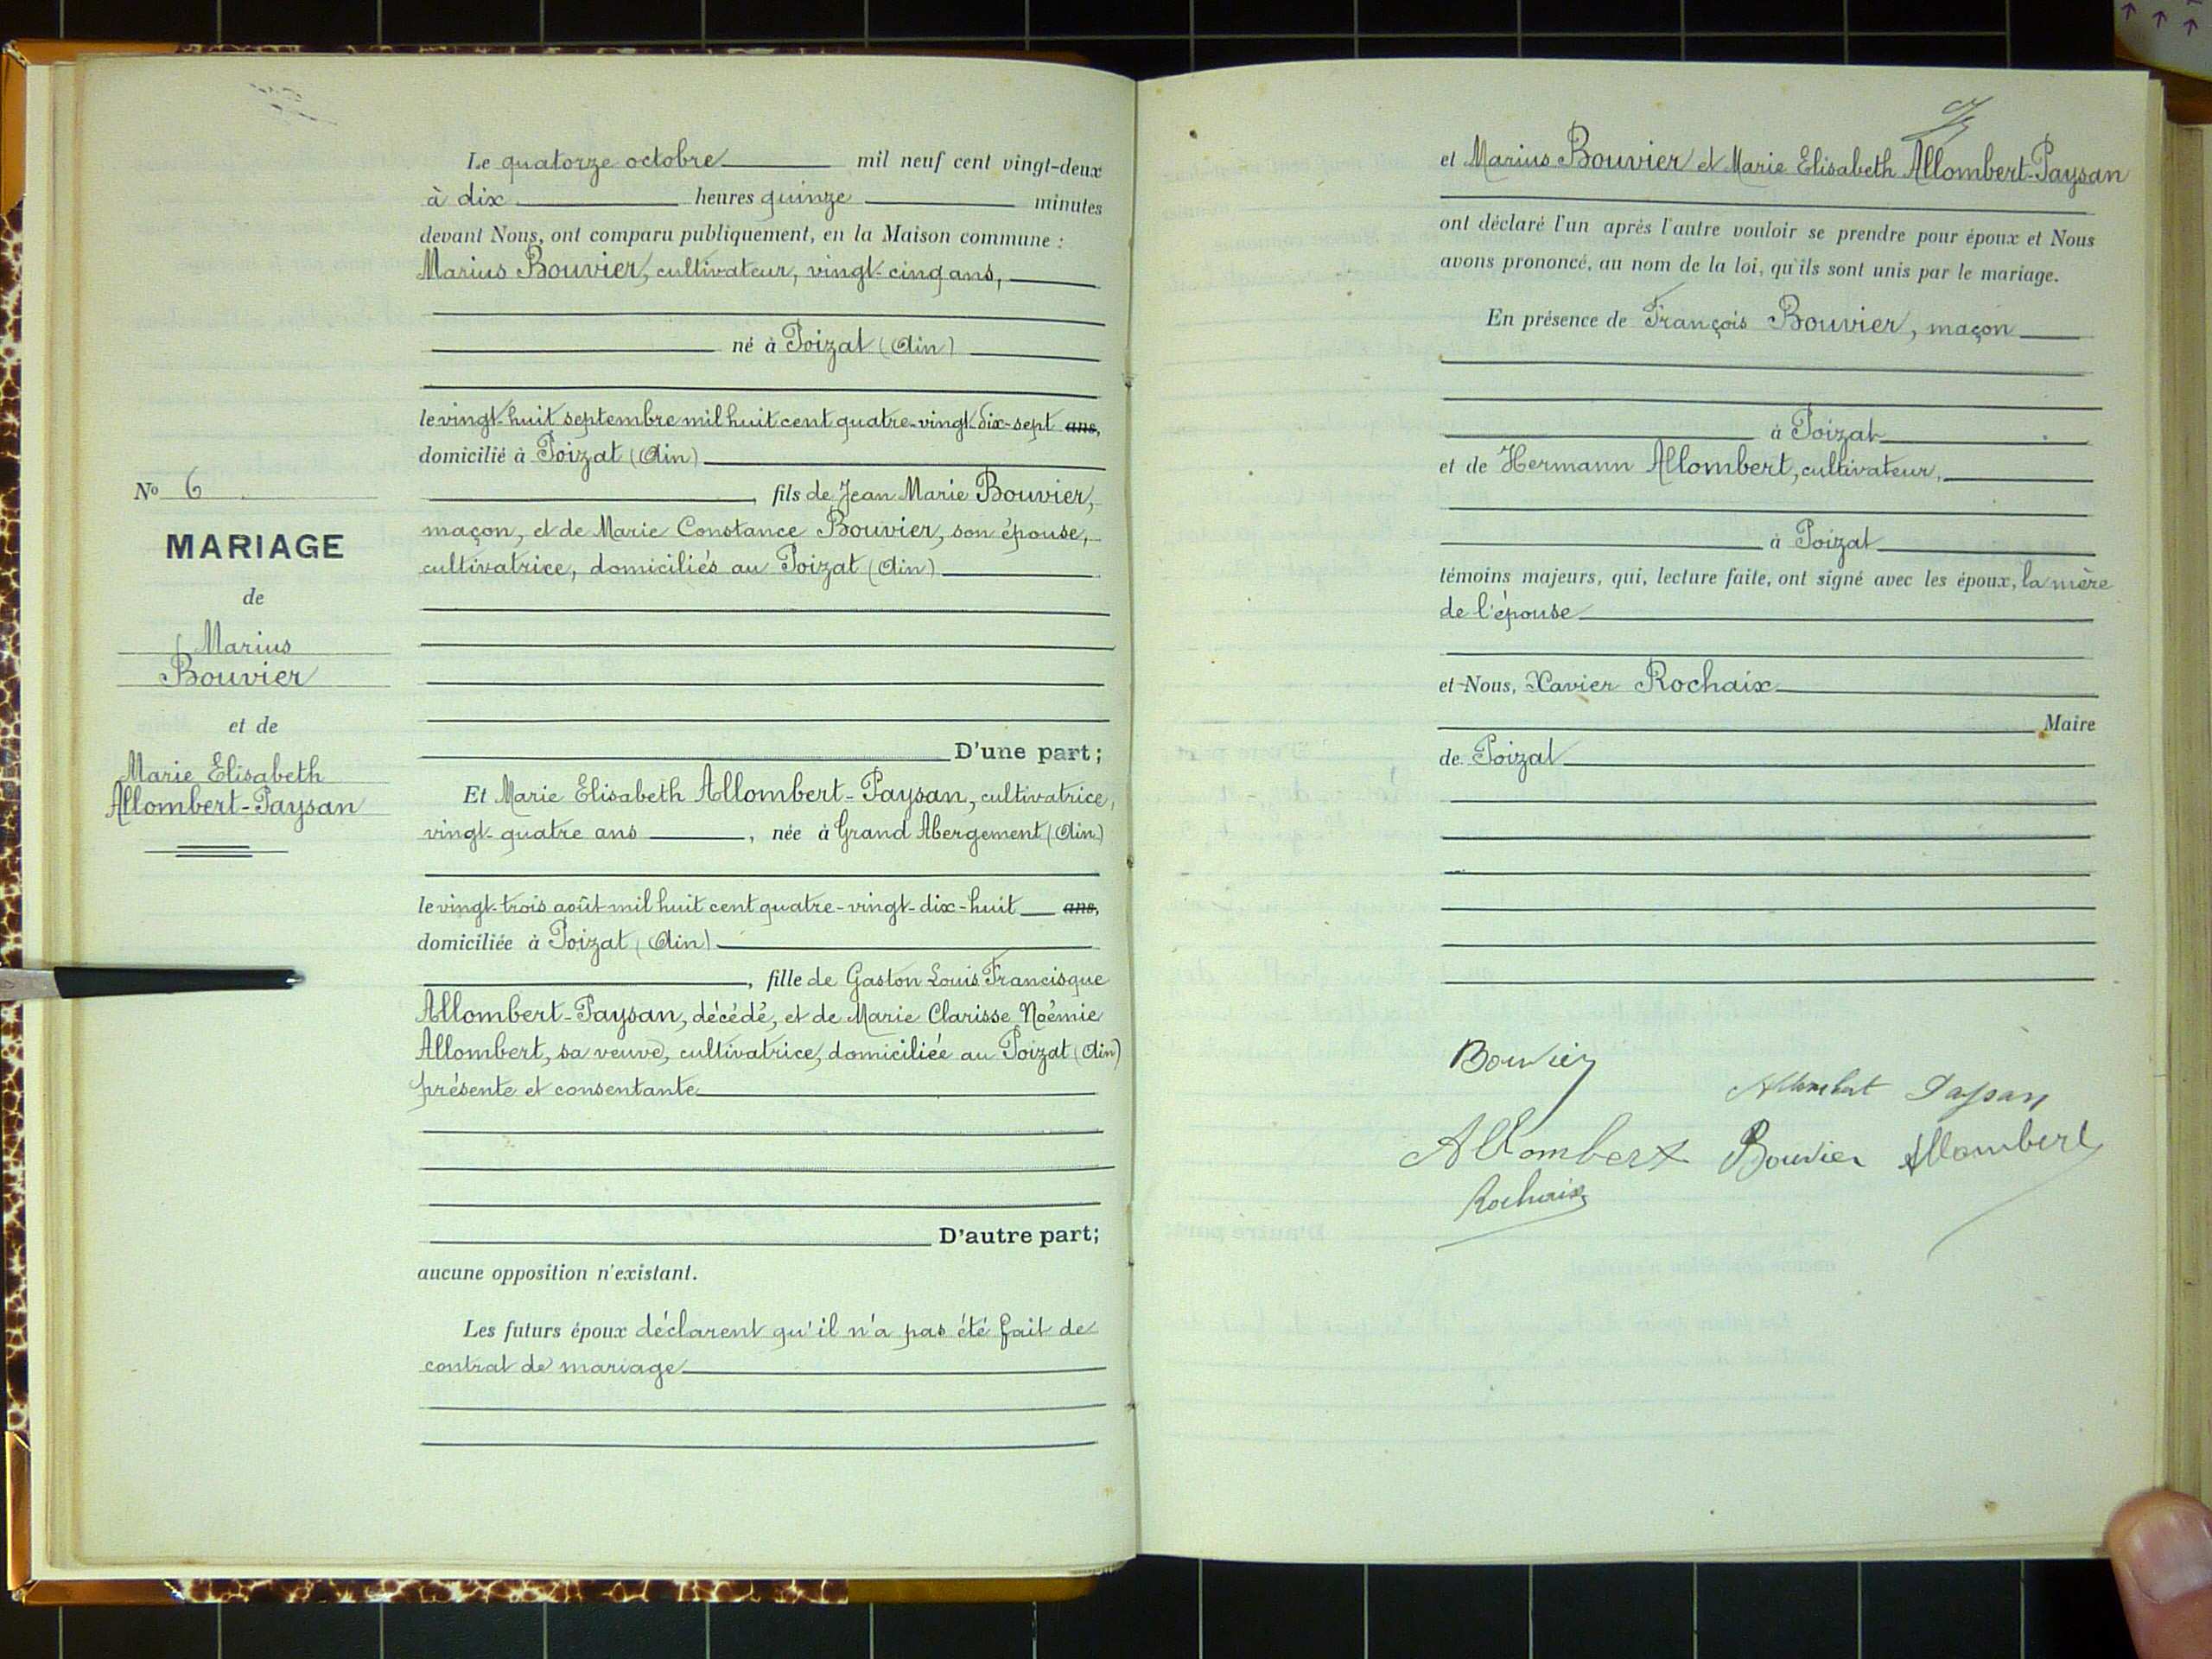 Le quatorze octobre mil neuf cent vingt-deux
à dix heures quinze minutes
devant Nous, ont comparu publiquement, en la Maison commune :
Marius Bouvier, cultivateur, vingt-cinq ans,
né à Poizat (Ain)
le vingt-huit septembre mil huit cent quatre-vingt-dix-sept ans,
domicilié à Poizat (Ain)
, fils de Jean Marie Bouvier,
maçon, et de Marie Constance Bouvier, son épouse,
cultivatrice, domiciliés au Poizat (Ain)
D'une part ;
Et Marie Elisabeth Allombert-Paysan, cultivatrice,
vingt-quatre ans , née à Grand Abergement (Ain)
le vingt-trois août mil huit cent quatre-vingt-dix-huit ans,
domiciliée à Poizat (Ain)
, fille de Gaston Louis Francisque
Allombert-Paysan, décédé, et de Marie Clarisse Noémie
Allombert, sa veuve, cultivatrice, domiciliée au Poizat (Ain)
présente et consentante
D'autre part ;
aucune opposition n'existant.
Les futurs époux déclarent qu'il n'a pas été fait de
contrat de mariage
No 6
MARIAGE
de
Marius
Bouvier
et de
Marie Elisabeth
Allombert-Paysan
et Marius Bouvier et Marie Elisabeth Allombert-Paysan
ont déclaré l'un après l'autre vouloir se prendre pour époux et Nous
avons prononcé, au nom de la loi, qu'ils sont unis par le mariage.
En présence de François Bouvier, maçon
à Poizat
et de Hermann Allombert, cultivateur,
à Poizat
témoins majeurs, qui, lecture faite, ont signé avec les époux, la mère
de l'épouse
et Nous, Xavier Rochaix
Maire
de Poizat
Bouvier
Allombert Paysan
Allombert Bouvier Allombert
Rochaix